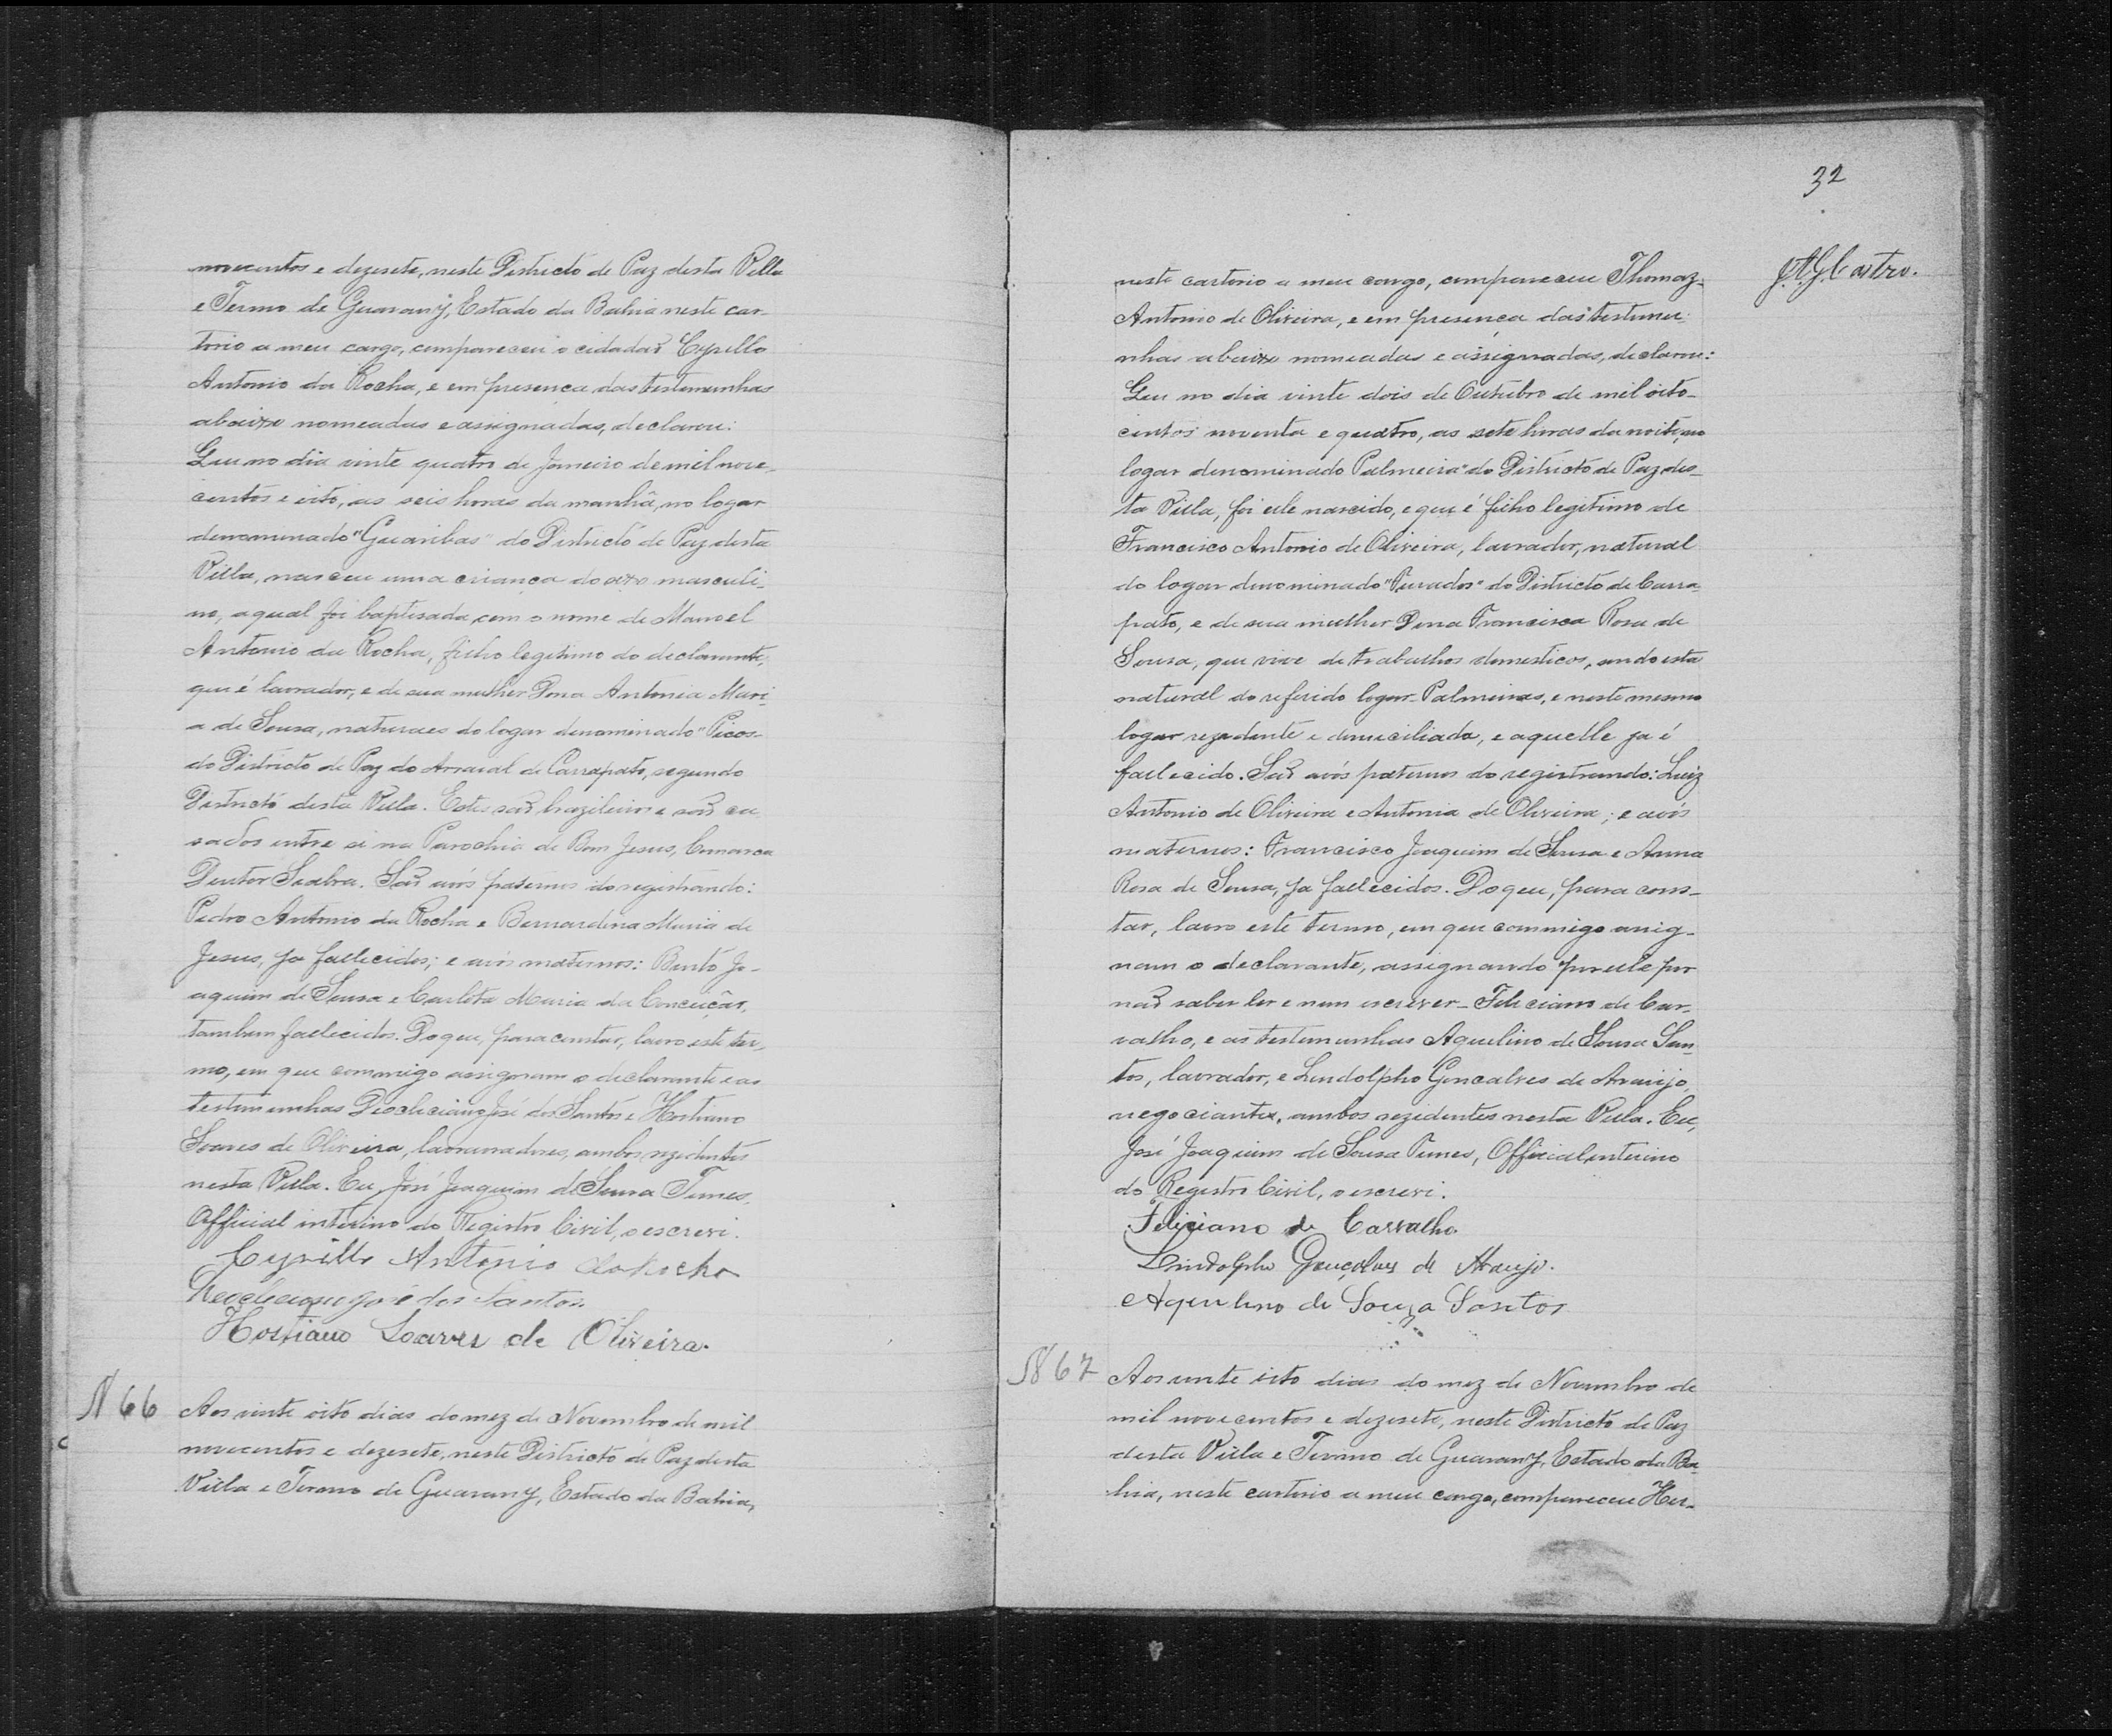 novecentos e dezesete, neste Districto de Paz desta Villa
e Termo de Guarany, Estado da Bahia neste car-
torio a meu cargo, compareceu o cidadaõ Cyrillo
Antonio da Rocha, e em presença das testemunhas
abaixo nomeadas e assignadas, declarou:
Que no dia vinte quatro de Janeiro de mil nove-
centos e oito, as seis horas da manhã, no logar
denominado "Guaribas" do Districto de Paz desta
Villa, nasceu uma criança do sexo masculi-
no, a qual foi baptisada com o nome de Manoel
Antonio da Rocha, filho legitimo do declarante,
que é lavrador, e de sua mulher Dona Antonia Mari-
a de Sousa, naturaes do logar denominado "Picos"
do Districto de Paz do Arraial de Carrapato, segundo
Districto desta Villa. Estes saõ brazileiros e saõ ca-
sados entre si na Parochia de Bom Jesus, Comarca
Doutor Seabra. Saõ avós paternos do registrando:
Pedro Antonio da Rocha e Bernardina Maria de
Jesus, ja fallecidos; e avós maternos: Bento Jo-
aquim de Sousa e Carlota Maria da Conceiçaõ,
tambem fallecidos. Do que, para constar, lavro este ter-
mo, em que commigo assignam o declarante e as
testemunhas Deocleciano José dos Santos e Hostiano
Soares de Oliveira, lavrauradores, ambos rezidentes
nesta Villa. Eu, José Joaquim de Sousa Tunes,
Official interino do Registro Civil, o escrevi.
Cyrillo Antonio da Rocha
Deocleciano José dos Santos
Hostiano Soares de Oliveira.
N 66 Aos vinte oito dias do mez de Novembro de mil
novecentos e dezesete, neste Districto de Paz desta
Villa e Termo de Guarany, Estado da Bahia,
32
J.A.G. Castro.
neste cartorio a meu cargo, compareceu Thomaz
Antonio de Oliveira, e em presença das testemu-
nhas abaixo nomeadas e assignadas, declarou:
Que no dia vinte dois de Outubro de mil oito-
centos noventa e quatro, as sete horas da noite, no
logar denominado Palmeira" do Districto de Paz des-
ta Villa, foi elle nascido, e que é filho legitimo de
Francisco Antonio de Oliveira, lavrador, natural
do logar denominado "Furados" do Districto de Carra-
pato, e de sua mulher Dona Francisca Rosa de
Sousa, que vive de trabalhos domesticos, sendo esta
natural do referido logar Palmeiras, e neste mesmo
logar rezidente e domiciliada, e aquelle ja é
fallecido. Saõ avós paternos do registrando: Luiz
Antonio de Oliveira e Antonia de Oliveira; e avós
maternos: Francisco Joaquim de Sousa e Anna
Rosa de Sousa, ja fallecidos. Do que, para cons-
tar, lavro este termo, em que commigo assig-
nam o declarante, assignando por elle por
naõ saber ler e nem escrever - Feliciano de Car-
valho, e as testemunhas Aquilino de Sousa San-
tos, lavrador, e Lindolpho Gonçalves de Araujo,
negociante, ambos rezidentes nesta Villa. Eu,
José Joaquim de Sousa Tunes, Official interino
do Registro Civil, o escrevi.
Feliciano de Carvalho
Lindolpho Gonçalves de Araujo.
Aquilino de Souza Santos
N 67 Aos vinte oito dias do mez de Novembro de
mil novecentos e dezesete, neste Districto de Paz
desta Villa e Termo de Guarany, Estado da Ba-
hia, neste cartorio a meu cargo, compareceu Her-